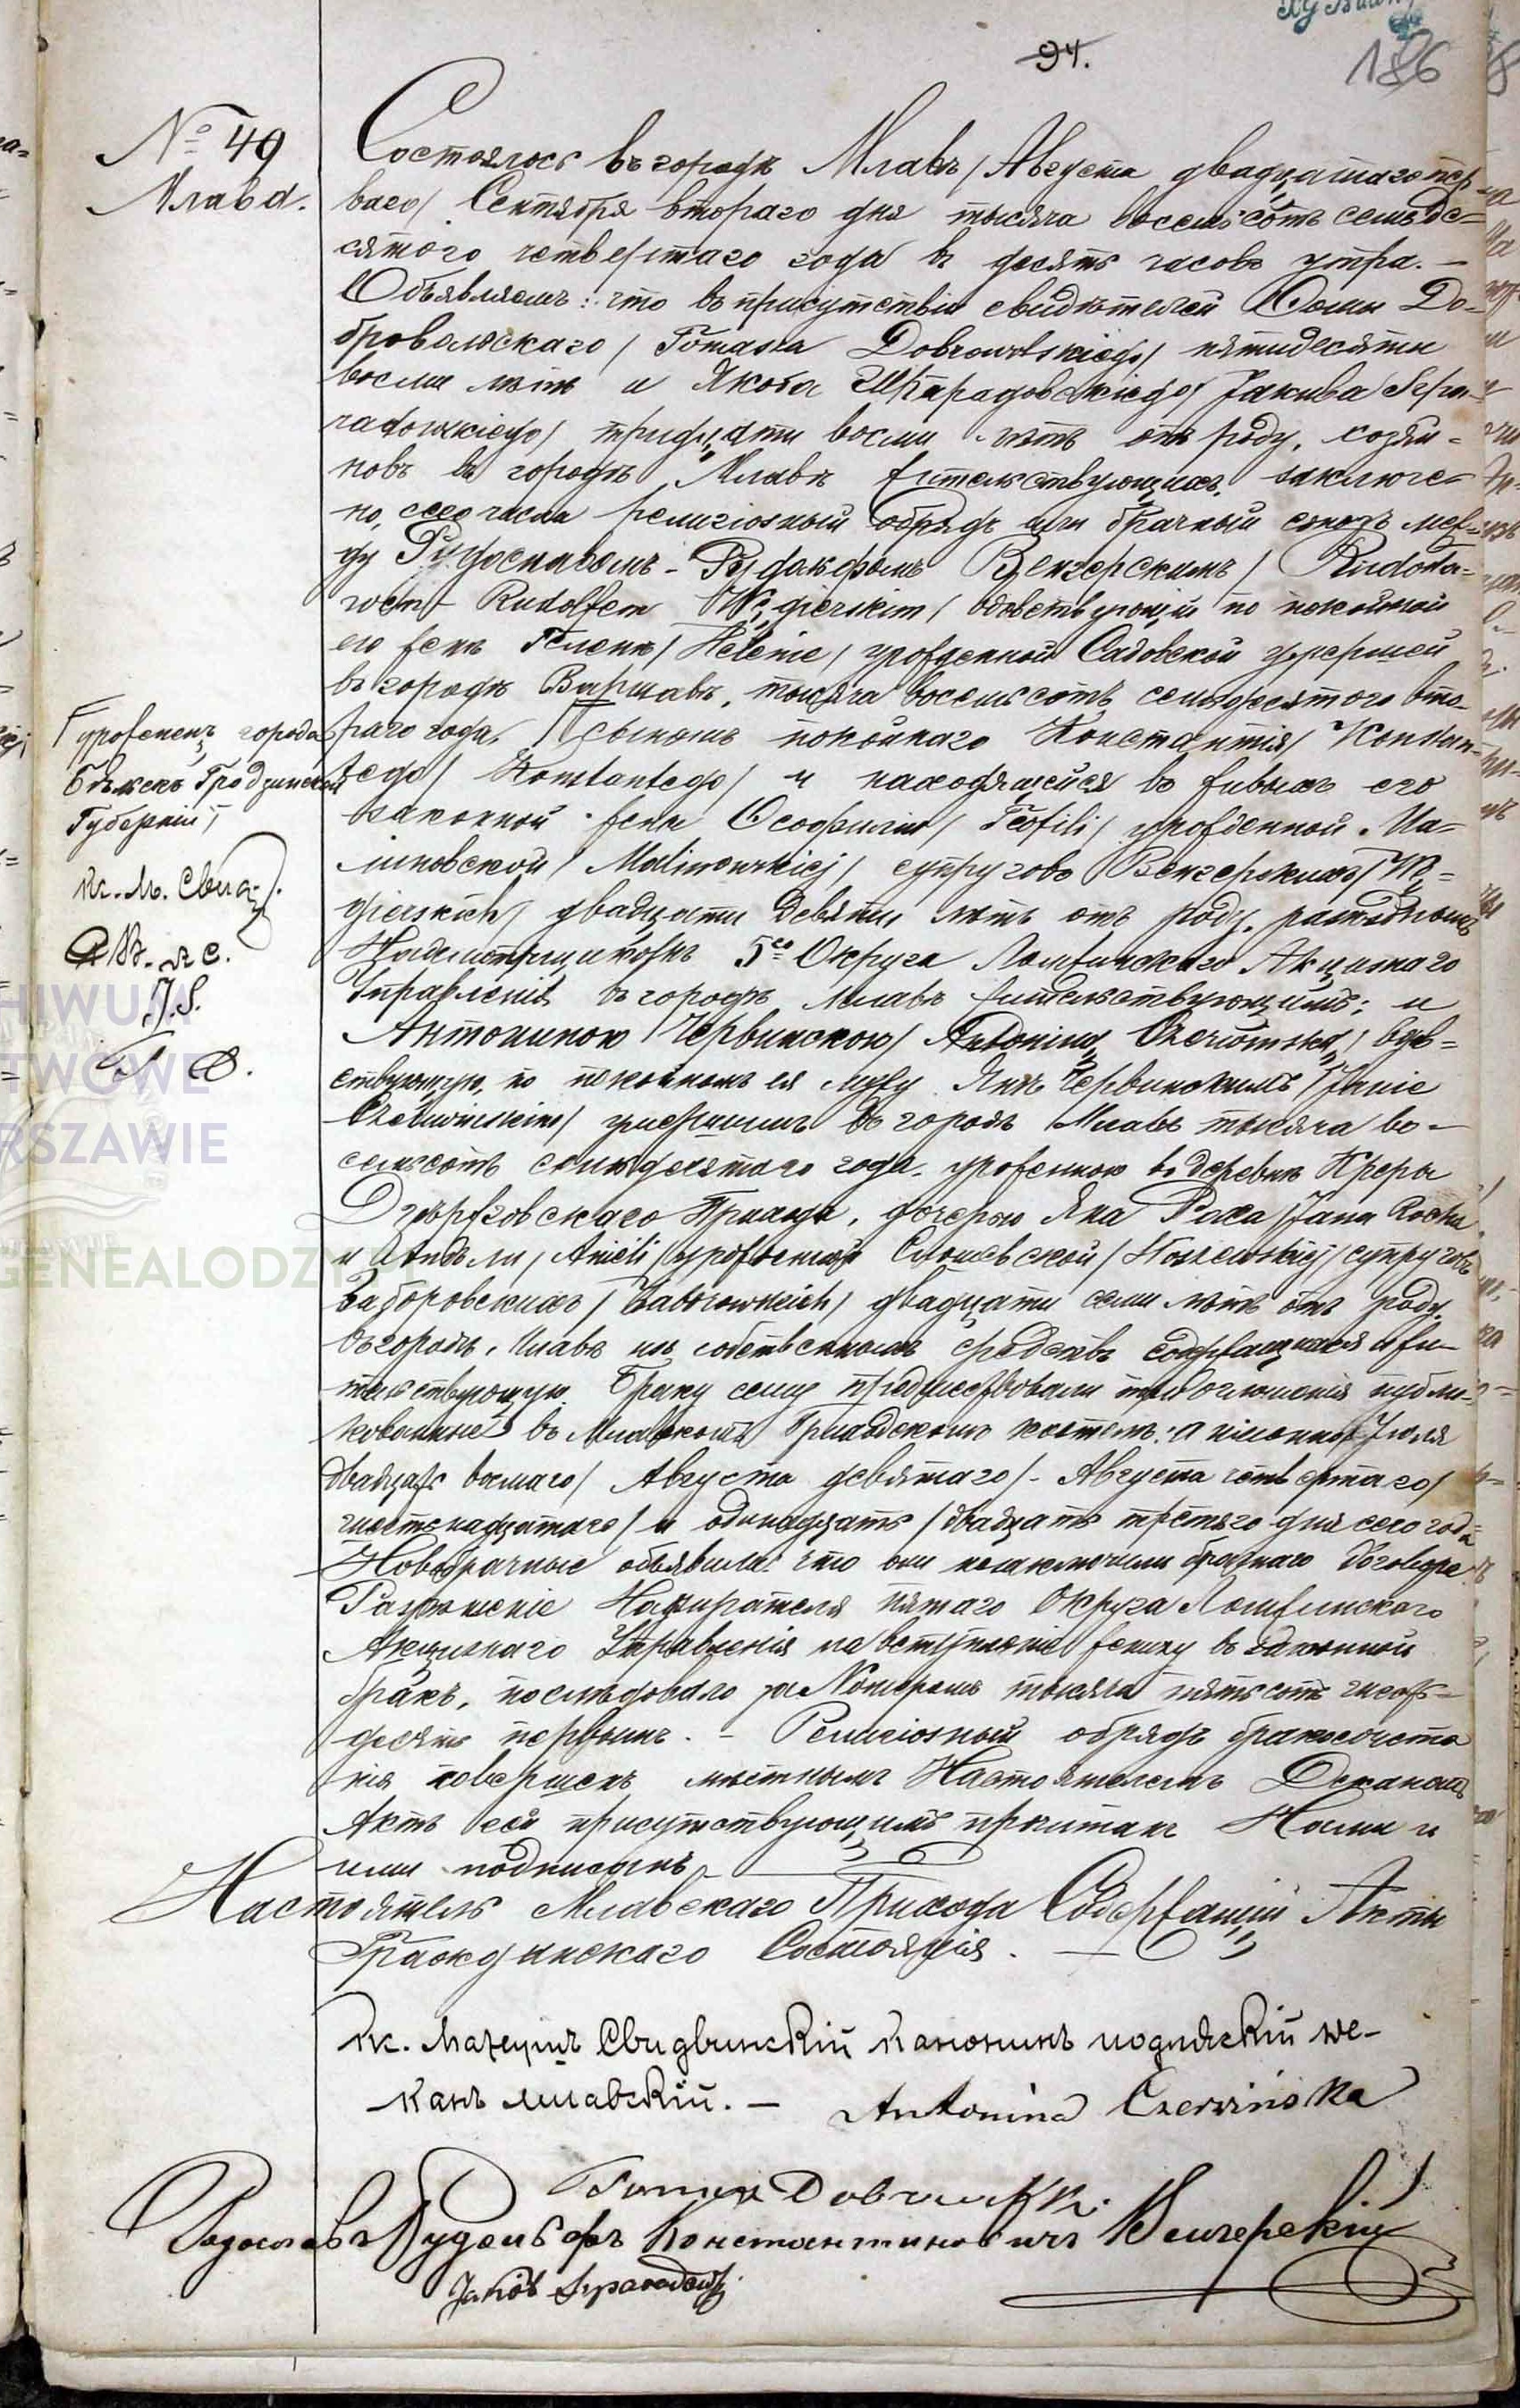 94.
186
№ 49
Млава.
Состоялось въ городѣ Млавѣ / Августа двадцатаго пер-
ваго / Сентября втораго дня тысяча восемьсотъ семьде-
сятого четвертаго года въ десять часовъ утра. —
Объявляемъ: что въ присутствіи свидѣтелей Ѳомы До-
бровольскаго / Tomasza Dobrowolskiego / пятидесяти
восми лѣтъ и Якоба / Jakuba Szpa-
radowskiego / тридцати восми лѣтъ отъ роду, хозяи-
новъ въ городѣ Млавѣ жительствующихъ, заключе-
но, сего числа религіозный обрядъ брачный союзъ меж-
ду Рудославомъ - Рудольфомъ Венгерскимъ / Rudosła-
wem - Rudolfem Węgierskim / вдовствующій по покойной
его женѣ Геленѣ / Helenie / урожденной Садовской умершей
въ городѣ Варшавѣ, тысяча восемьсотъ семьдесятого вто-
раго года, сыномъ покойнаго Константія / Konstan-
tego / Konstantego / и находящейся въ живыхъ его
законной жены Ѳеофили / Teofili / урожденной Ма-
линовской / Malinowskiej / супруговъ Венгерскихъ / Wę-
gierskich / двадцати девяти лѣтъ отъ роду,
5го Округа Ломжинскаго Акцизнаго
Управленія въ городѣ Млавѣ жительствующимъ; и
Антониною Червинскою / Antoniną Czerwinską / вдов-
ствующую, по покойномъ ея мужу Янѣ Червинскимъ / Janie
Czerwinskim / умершимъ въ городѣ Млавѣ тысяча во-
семьсотъ семидесятаго года, урожденною въ деревнѣ Крери
Дзержговскаго Прихода, дочерью Яна Роха / Jana Rocha
и Анѣли / Anieli / урожденной / супруговъ
Заборовскихъ / Zaborowskich / двадцати семи лѣтъ отъ роду
въ городѣ, Млавѣ изъ собственныхъ средствъ содержащуюся и жи-
тельствующую. Браку сему предшествовали три оглашенія публи-
кованные въ Млавскомъ Приходскомъ костелѣ: а именно Іюля
двадцать восмаго / Августа девятаго / - Августа четвертаго /
шестнадцатаго / и одинадцать / двадцать третьяго дня сего года
Новобрачные объявили что они незаключили брачнаго договора
Разрѣшеніе Надзирателя пятаго Округа Ломжинского
Акцизнаго Управленія на вступленіе жениху въ законный
бракъ, послѣдовало за Номеромъ тысяча пятьсотъ шесть-
десять первымъ. - Религіозный обрядъ бракосочета
нія совершенъ мѣстнымъ Настоятелемъ Деканомъ
Актъ сей присутствующимъ прочитанъ Нами и
ими подписанъ
Настоятель Млавскаго Прихода Содержащій Акты
Гражданскаго Состоянія. —
Кс. Матеушъ Свидвинскій Каноникъ подляскій де-
канъ млавскій. — Antonina Czerwińska
Рудославъ Рудольфъ Константиновичъ Венгерскій
урожденецъ города
Бѣльскъ Гродзинской
Губерніи
Кс. М. Свид.
A W. A C.
J. S.
T D.
HIWUM
TWOWE
RSZAWIE
GENEALODZY